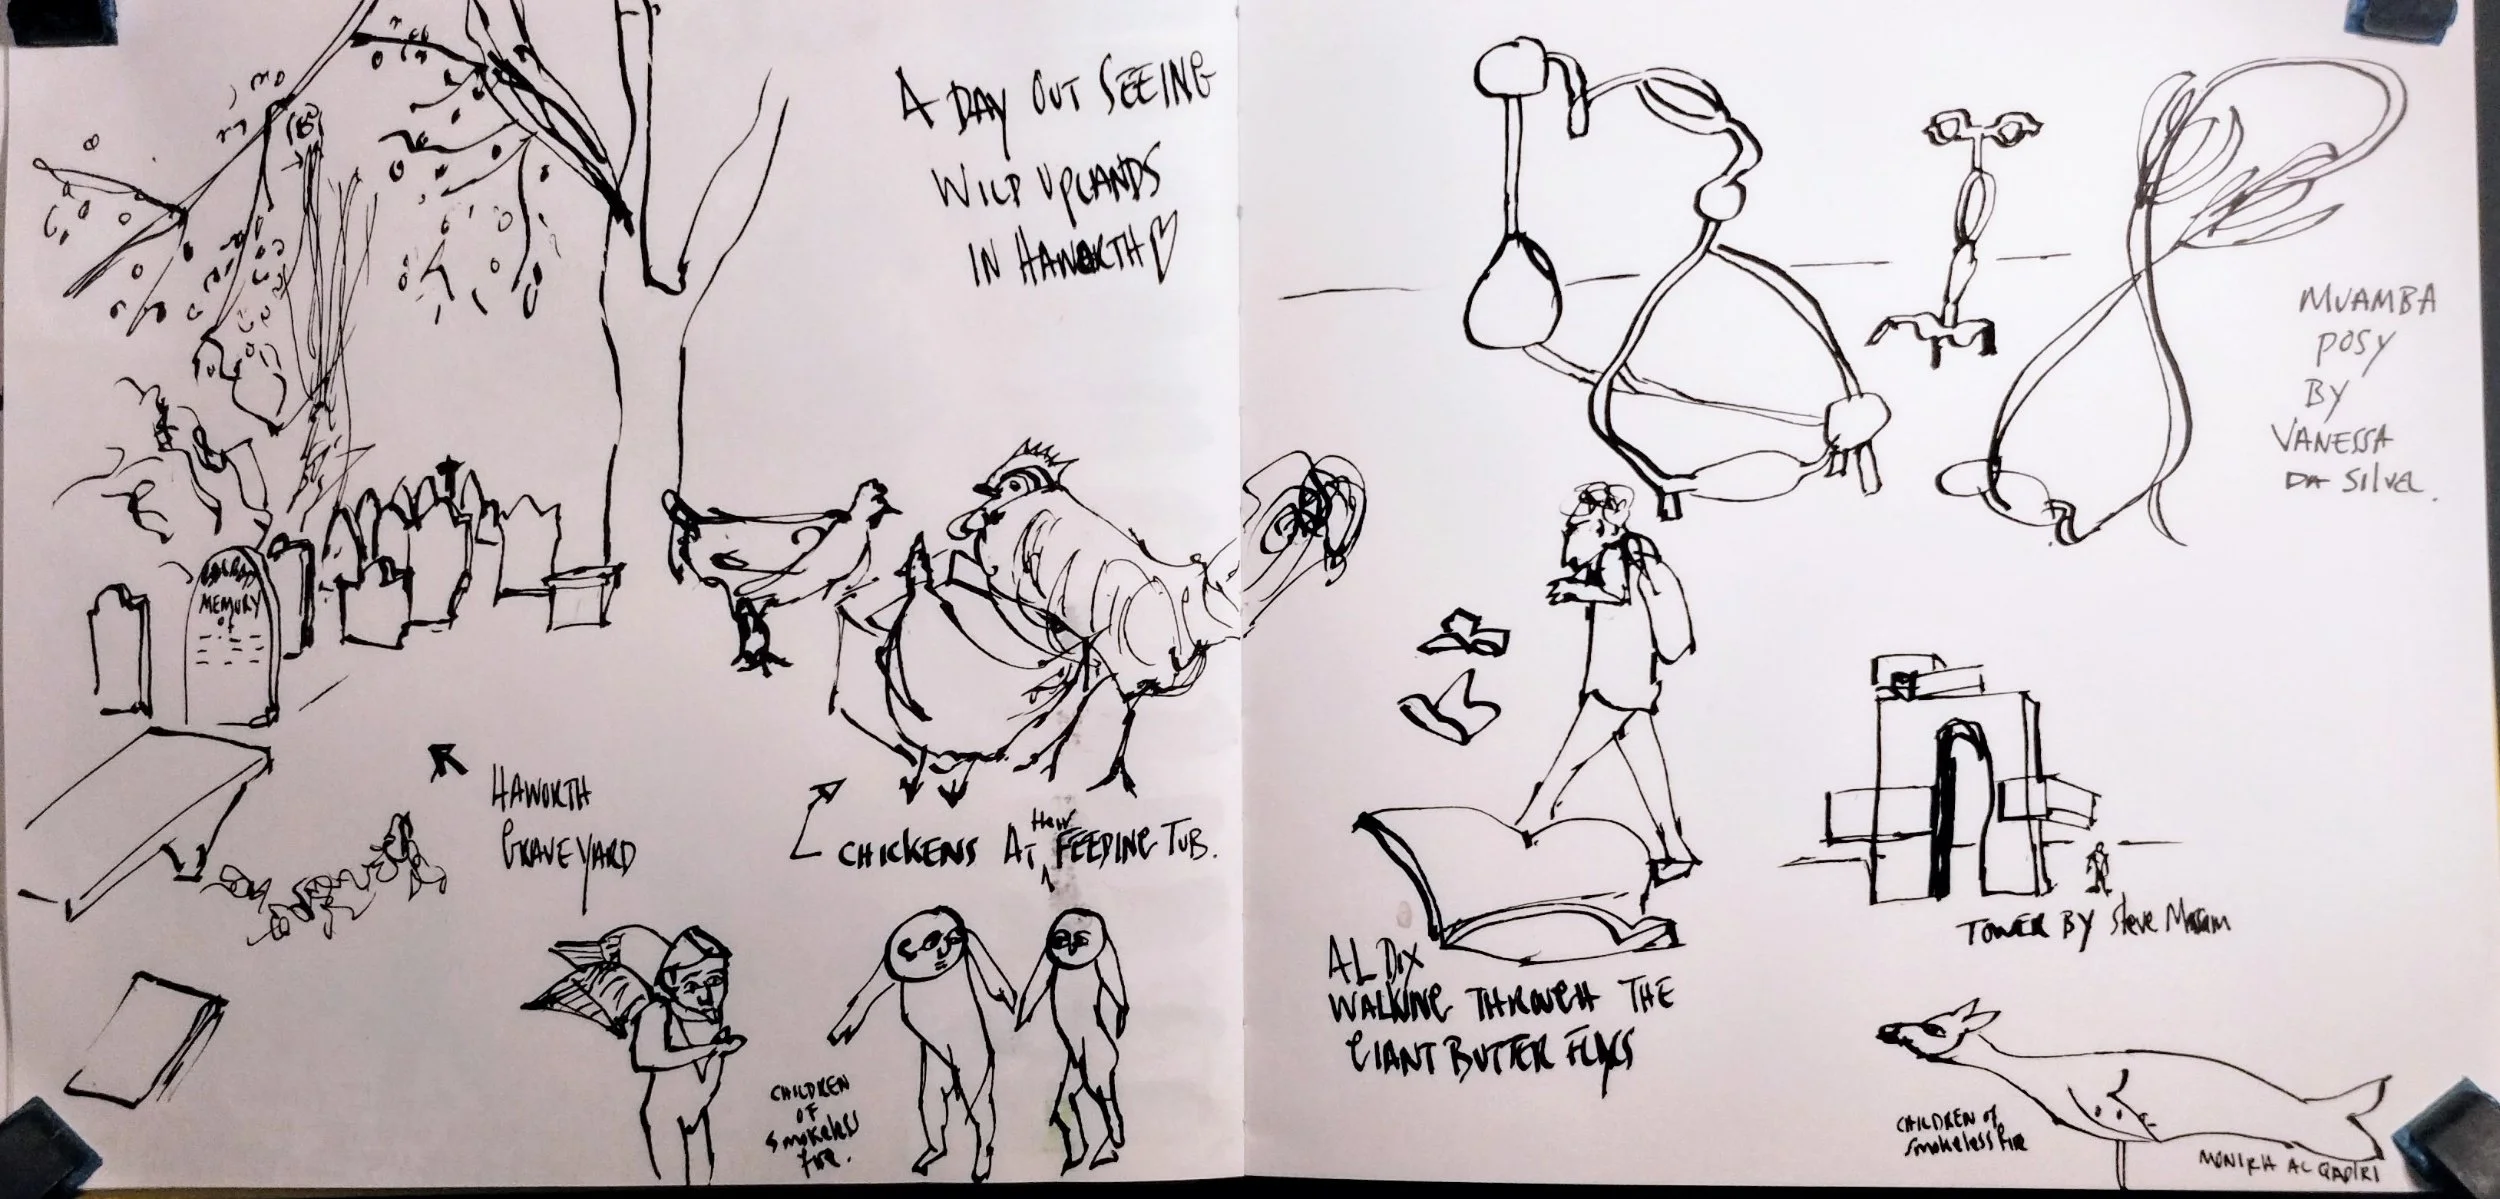 A DAY OUT SEEING
WILD UPLANDS
IN HAWORTH
MEMORY
of
HAWORTH
GRAVEYARD
CHICKENS AT Their FEEDING TUB.
CHILDREN
OF
Smokeless
fire.
MUAMBA
POSY
BY
VANESSA
DA SILVA.
AL DIX
WALKING THROUGH THE
GIANT BUTTER FLYS
TOWER BY Steve
CHILDREN of
Smokeless fire
MONIRA AL QADIRI